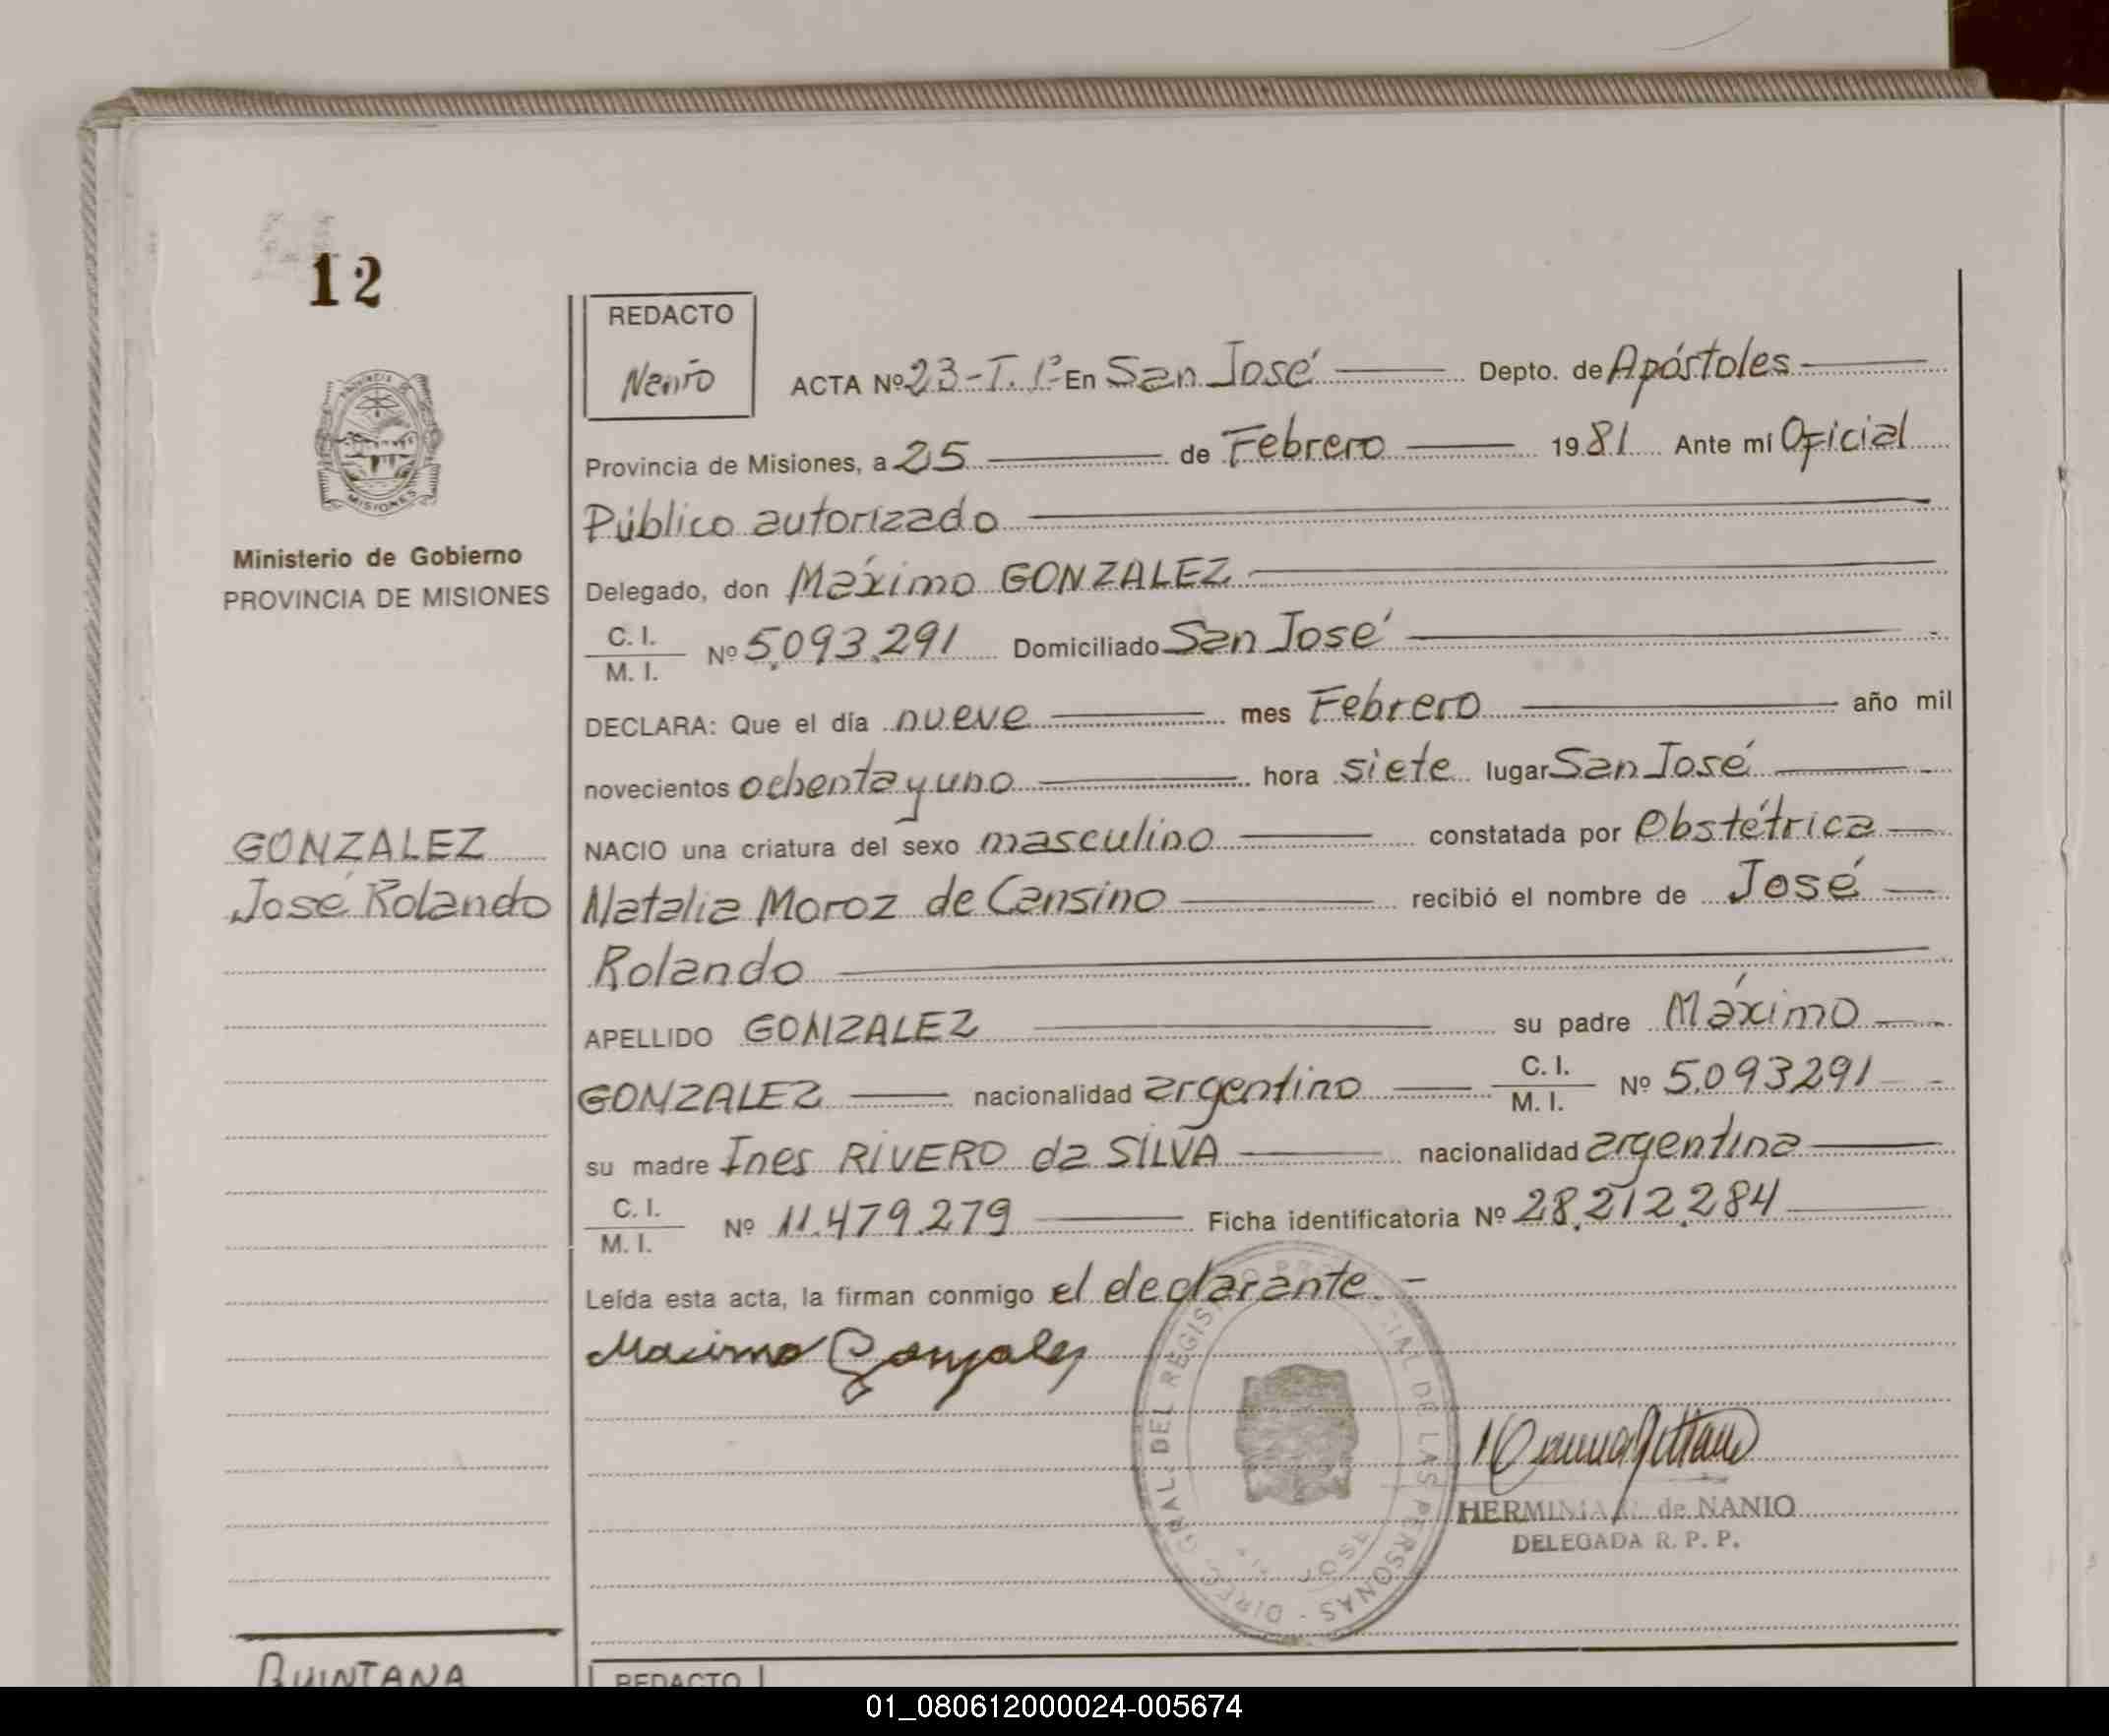 12
REDACTO
Nanio
ACTA Nº 23-T. 1º- En San José Depto. de Apóstoles
Provincia de Misiones, a 25 de Febrero 1981 Ante mí Oficial
Público autorizado
Delegado, don Máximo GONZALEZ
C. I.
M. I. Nº 5.093.291 Domiciliado San José
DECLARA: Que el día nueve mes Febrero año mil
novecientos ochenta y uno hora siete lugar San José
NACIO una criatura del sexo masculino constatada por Obstétrica
Natalia Moroz de Cansino recibió el nombre de José
Rolando
APELLIDO GONZALEZ su padre Máximo
GONZALEZ nacionalidad argentino C. I.
M. I. Nº 5.093.291
su madre Ines RIVERO da SILVA nacionalidad argentina
C. I.
M. I. Nº 11.479.279 Ficha identificatoria Nº 28.212.284
Leída esta acta, la firman conmigo el declarante.-
Maximo Gonzalez
HERMINIA de NANIO
DELEGADA R. P. P.
DIREC. GRAL. DEL REGISTRO PROVINCIAL DE LAS PERSONAS
SAN JOSE
PROVINCIA DE
MISIONES
Ministerio de Gobierno
PROVINCIA DE MISIONES
GONZALEZ
José Rolando
QUINTANA
REDACTO
01_080612000024-005674